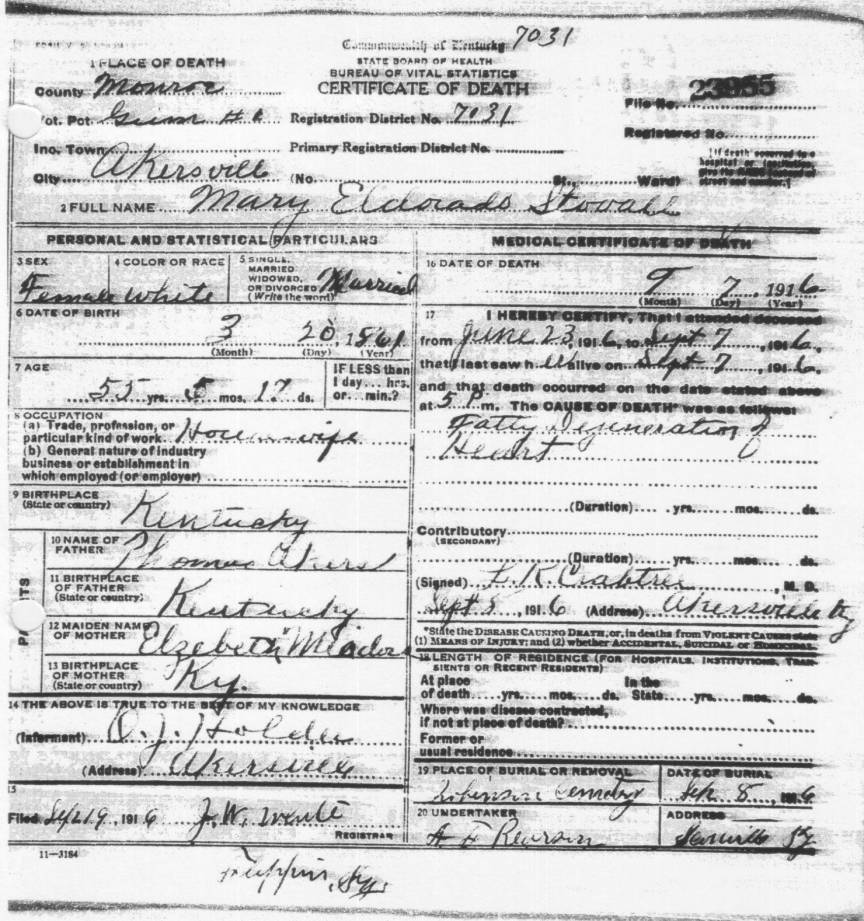 Commonwealth of Kentucky 7031
STATE BOARD OF HEALTH
BUREAU OF VITAL STATISTICS
CERTIFICATE OF DEATH
1 PLACE OF DEATH
County Monroe
Vot. Pct. Gum #6 Registration District No. 7031
Inc. Town Primary Registration District No.
City Akersville (No. St., Ward)
File No. 23955
Registered No.
[If death occurred in a
hospital or institution,
give its NAME instead of
street and number.]
2 FULL NAME Mary Eldorado Stovall
PERSONAL AND STATISTICAL PARTICULARS
3 SEX
Female
4 COLOR OR RACE
White
5 SINGLE,
MARRIED
WIDOWED,
OR DIVORCED
(Write the word)
Married
6 DATE OF BIRTH
3 20, 1861
(Month) (Day) (Year)
7 AGE
55 yrs. 5 mos. 17 ds.
IF LESS than
1 day... hrs.
or... min.?
8 OCCUPATION
(a) Trade, profession, or
particular kind of work Housewife
(b) General nature of industry
business or establishment in
which employed (or employer)
9 BIRTHPLACE
(State or country)
Kentucky
PARENTS
10 NAME OF
FATHER
Thomas Akers
11 BIRTHPLACE
OF FATHER
(State or country)
Kentucky
12 MAIDEN NAME
OF MOTHER
Elzebeth Meadors
13 BIRTHPLACE
OF MOTHER
(State or country)
Ky.
14 THE ABOVE IS TRUE TO THE BEST OF MY KNOWLEDGE
(Informant) O. J. Holder
(Address) Akersville
15
Filed Sep 19, 1916 J. W. White
REGISTRAR
11—3184
MEDICAL CERTIFICATE OF DEATH
16 DATE OF DEATH
9 7, 1916
(Month) (Day) (Year)
17 I HEREBY CERTIFY, That I attended deceased
from June 23, 1916, to Sept 7, 1916,
that I last saw her alive on Sept 7, 1916,
and that death occurred on the date stated above
at 5 P m. The CAUSE OF DEATH* was as follows:
Fatty Degeneration of
Heart
(Duration) yrs. mos. ds.
Contributory
(SECONDARY)
(Duration) yrs. mos. ds.
(Signed) L. K. Crabtree, M. D.
Sept 8, 1916 (Address) Akersville Ky
*State the DISEASE CAUSING DEATH, or, in deaths from VIOLENT CAUSES state
(1) MEANS OF INJURY; and (2) whether ACCIDENTAL, SUICIDAL or HOMICIDAL
18 LENGTH OF RESIDENCE (FOR HOSPITALS, INSTITUTIONS, TRANSIENTS OR RECENT RESIDENTS)
At place In the
of death yrs. mos. ds. State yrs. mos. ds.
Where was disease contracted,
if not at place of death?
Former or
usual residence
19 PLACE OF BURIAL OR REMOVAL
Robinson Cemetery
DATE OF BURIAL
Sep 8, 1916
20 UNDERTAKER
A F Pearson
ADDRESS
Ky